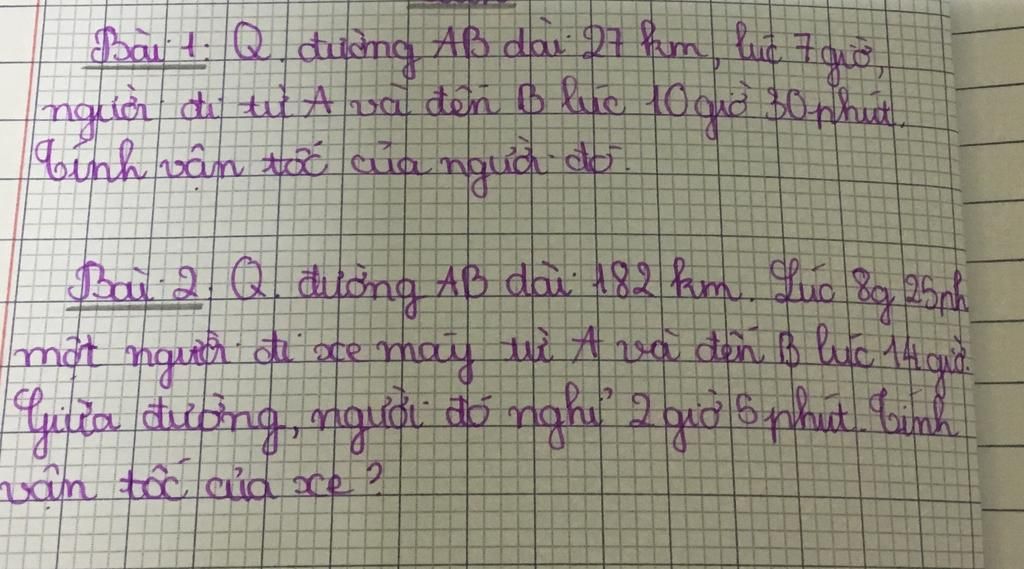 Bài 1: Q. đường AB dài 27 km, lúc 7 giờ,
người đi từ A và đến B lúc 10 giờ 30 phút.
Tính vận tốc của người đó.
Bài 2, Q. đường AB dài 182 km. Lúc 8g 25ph
một người đi xe máy từ A và đến B lúc 14 giờ.
Giữa đường, người đó nghỉ 2 giờ 5 phút. Tính
vận tốc của xe?